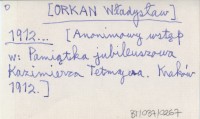 [ORKAN Władysław]
1912... [Anonimowy wstęp
w: Pamiątka jubileuszowa
Kazimierza Tetmajera. Kraków
1912.]